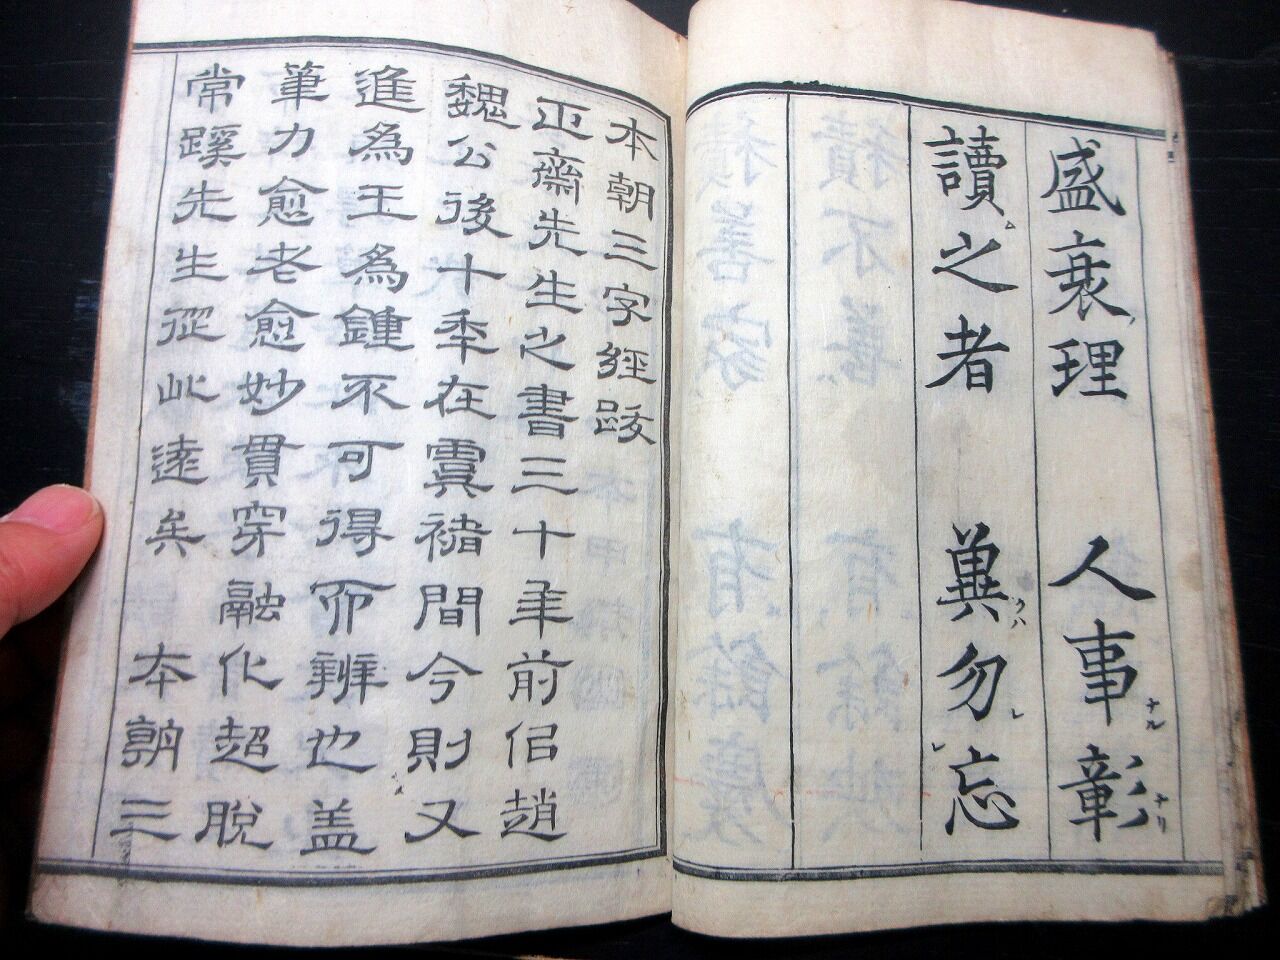 盛衰理 人事彰
ナル
ナリ
讀之者 冀勿忘
ム
クハ
レ
本朝三字經跋
正齋先生之書三十年前佀趙
魏公後十秊在虞褚間今則又
進為王為鍾不可得而辨也盖
筆力愈老愈妙貫穿融化超脫
常蹊先生從此遠矣 本朝三